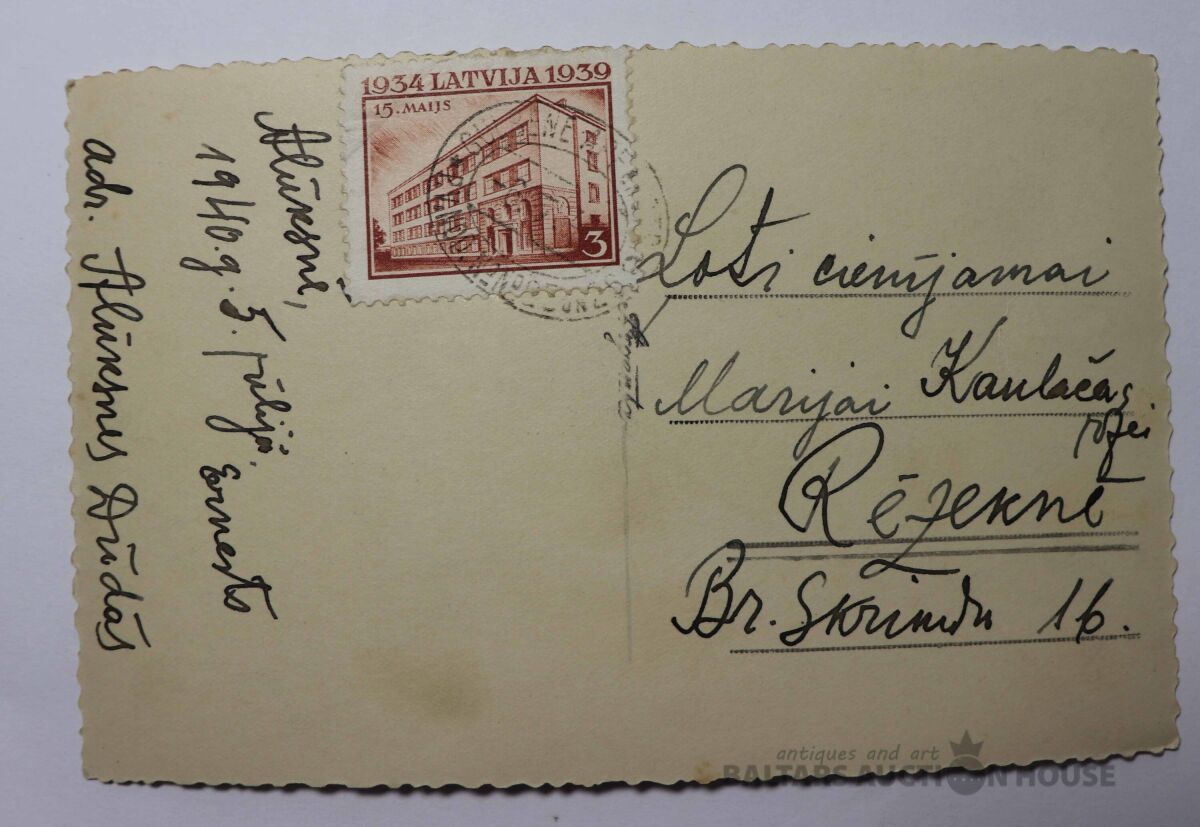 1934 LATVIJA 1939
15. MAIJS
3
Alūksnē,
1940.g. 5. jūlijā.
Ernests
adr. Alūksnes Dūdās
Ļoti cienījamai
Marijai Kaulačas
Rēzeknē
Br. Skrindu 16.
antiques and art
BALTARS AUCTION HOUSE